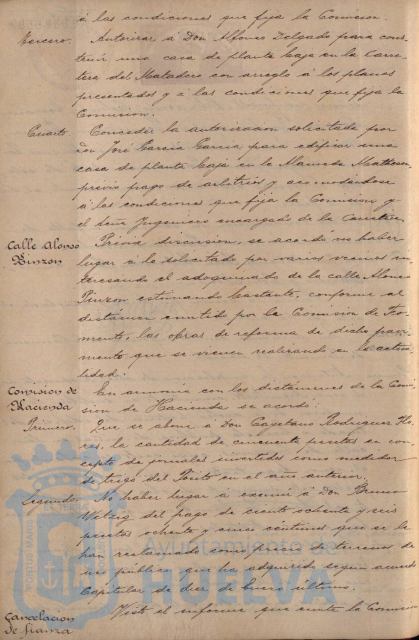 á las condiciones que fija la Comision.
Tercero. Autorizar á Don Alfonso Delgado para cons-
truir una casa de planta baja en la Carre-
tera del Matadero con arreglo á los planos
presentados y á las condiciones que fija la
Comision.
Cuarto Conceder la autorizacion solicitada por
Don José Garcia Garcia para edificar una
casa de planta baja en la Alameda
previo pago de arbitrios y acomodandose
á las condiciones que fija la Comision y
el Señor Ingeniero encargado de la Carretera.
Calle Alonso
Pinzon
Previa discusion, se acordó no haber
lugar á lo solicitado por varios vecinos in-
teresando el adoquinado de la calle Alonso
Pinzon estimando bastante, conforme al
dictámen emitido por la Comision de Fo-
mento, las obras de reforma de dicho pavi-
mento que se vienen realizando en la actua-
lidad.
Comision de
Hacienda
En armonia con los dictámenes de la Comi-
sion de Hacienda se acordó:
Primero. Que se abone á Don Cayetano Rodriguez
la cantidad de cincuenta pesetas en con-
cepto de jornales invertidos como medidor
de trigo del Pósito en el año anterior.
Segundo. No haber lugar á eximir á Don Bruno
Wetzig del pago de ciento ochenta y seis
pesetas ochenta y cinco céntimos que se le
han reclamado como precio de terrenos de
uso público que ha adquirido segun acuerdo
Capitular de diez de Enero último.
Cancelacion
de fianza
Visto el informe que emite la Comision
PORTUS MARIS
ET TERRAE
Ayuntamiento de
HUELVA